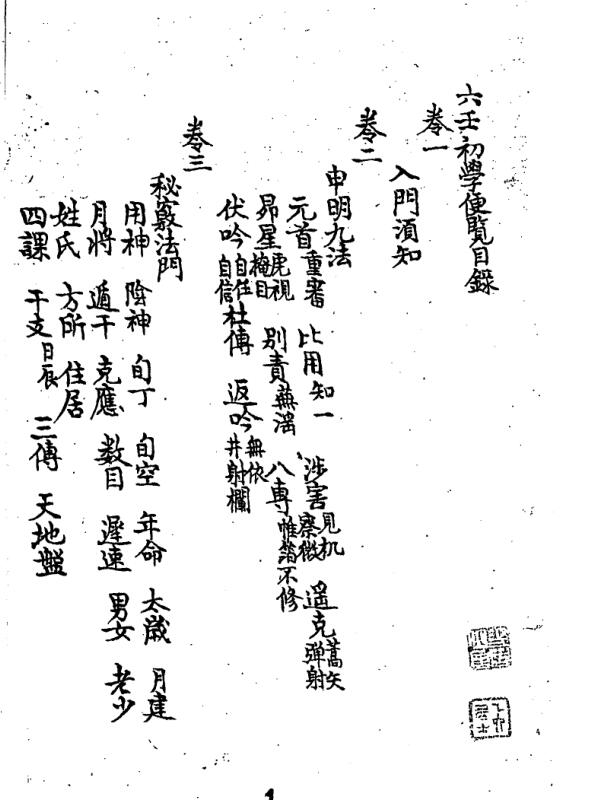 六壬初學便覽目錄
卷一
入門須知
卷二
申明九法
元首 重審 比用 知一 涉害 見机 察微 遥克 蒿矢 彈射
昴星 虎視 掩目 别責 蕪滛 八專 帷簿不修
伏吟 自任 自信 杜傳 返吟 無依 井射欄
卷三
秘竅法門
用神 陰神 旬丁 旬空 年命 太歲 月建
月將 遁干 克應 数目 遲速 男女 老少
姓氏 方所 住居
四課 干支 日辰 三傳 天地盤
1